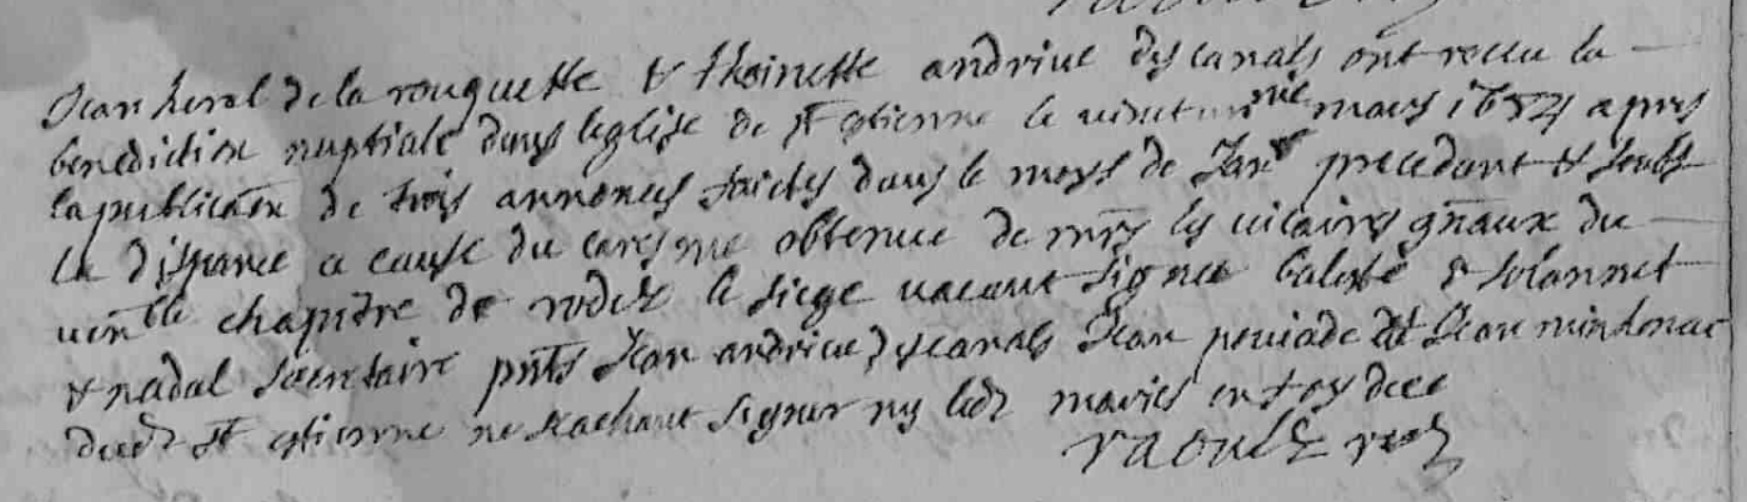 Jean heral de la rouquette & thoinette andriue descanals ont receu la
benediction nuptiale dans leglise de st estienne le vint un nie mars 1684 apres
la publicaon de trois annonces faictes dans le moys de Janr precedant & soubs
la dispance a cause du caresme obtenue de mrs les vicaires gnaux du
venble chapitre de rodez le siege vacant signee baliste & solannet
& nadal secretaire pnts Jean andrieu descanals Jean peuiade & Jean
dud st estienne ne sachant signer ny lesd mariés en foy dece
raoulz